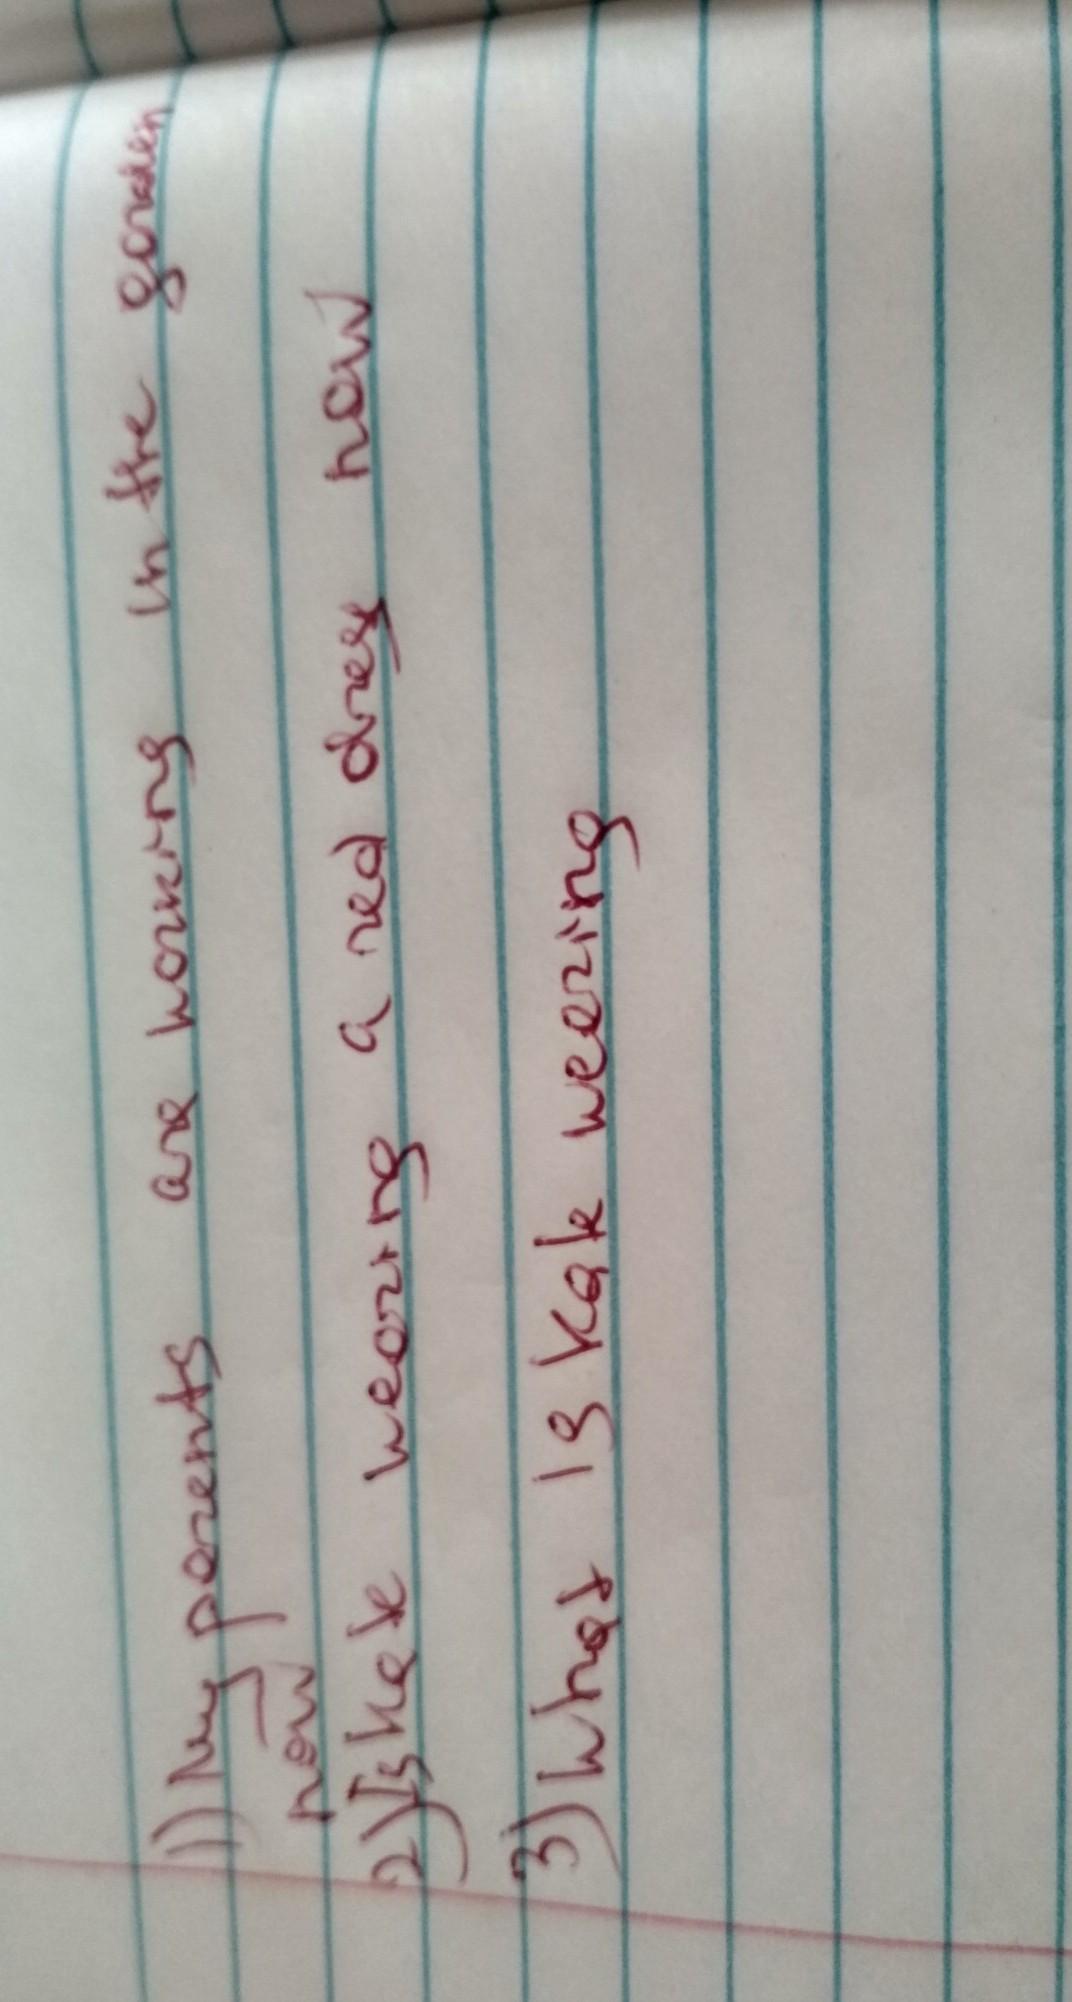 1) My parents are working in the garden
now
2) Is Kate wearing a red dress now
3) What is Kate wearing